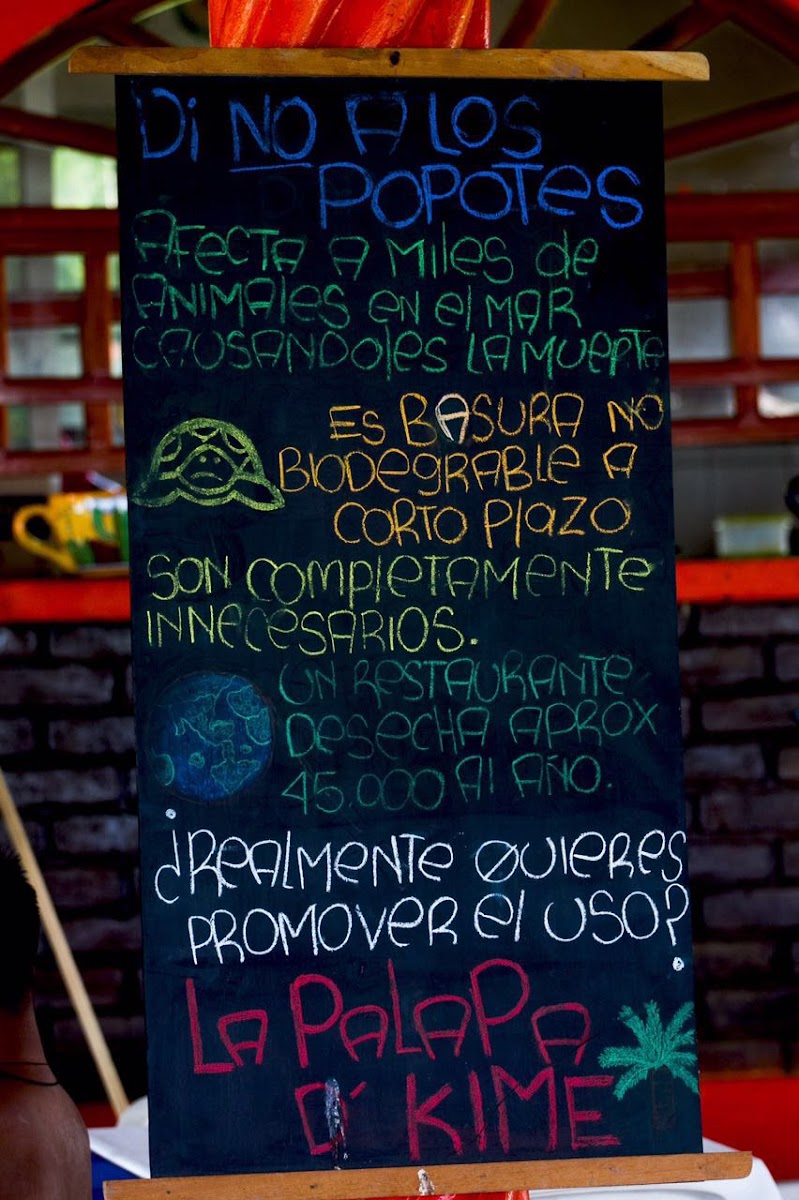 Di NO A LOS
POPOTES
AFECTA A MILES DE
ANIMALES EN EL MAR
CAUSANDOLES LA MUERTE
ES BASURA NO
BIODEGRABLE A
CORTO PLAZO
SON COMPLETAMENTE
INNECESARIOS.
UN RESTAURANTE
DESECHA APROX
45.000 AL AÑO.
¿REALMENTE QUIERES
PROMOVER EL USO?
LA PALAPA
D' KIME